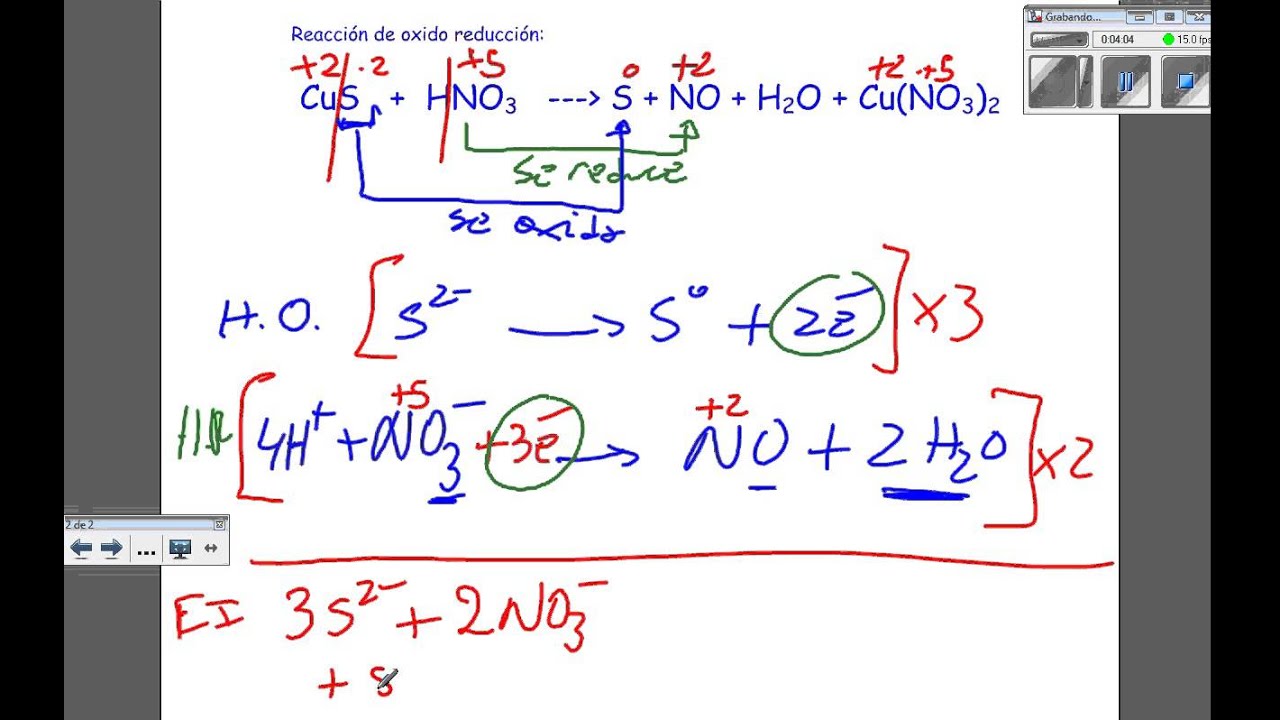 Grabando...
0:04:04 15.0 fps
Reacción de oxido reducción:
+2 -2 +5 0 +2 +2 +5
CuS + HNO₃ ---> S + NO + H₂O + Cu(NO₃)₂
se reduce
se oxida
H.O. [S²⁻ → S⁰ + 2e⁻] x3
+5 +2
HR [4H⁺ + NO₃⁻ + 3e⁻ → NO + 2H₂O] x2
2 de 2
...
EI 3S²⁻ + 2NO₃⁻
+ 8